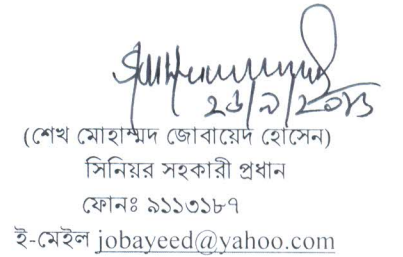 ২৬/৯/২০১৩
(শেখ মোহাম্মদ জোবায়েদ হোসেন)
সিনিয়র সহকারী প্রধান
ফোনঃ ৯১১৩১৮৭
ই-মেইল jobayeed@yahoo.com